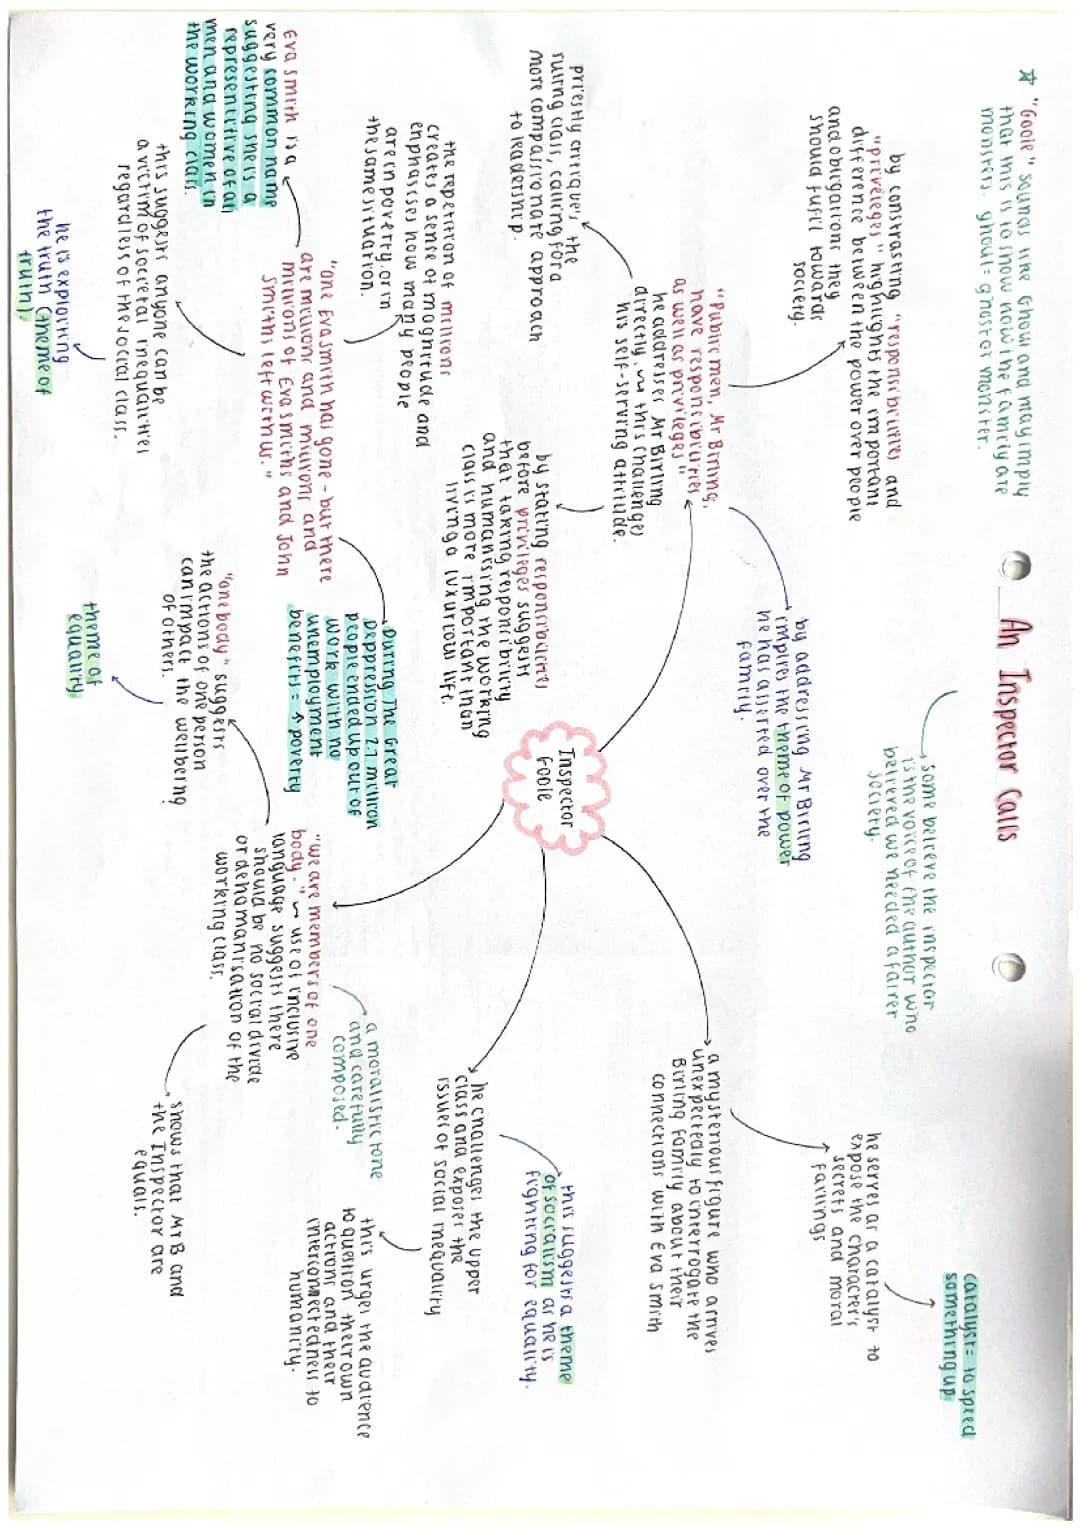 An Inspector Calls
☆ "Goole" sounds like Ghoul and may imply
that this is to show how the family are
monsters. ghoul = ghost or monster.
some believe the inspector
is the voice of the author who
believed we needed a fairer
society.
catalyst = to speed
something up
by constrasting "responsibilities and
"privileges" highlights the important
difference between the power over people
and obligations they
should fufil towards
society.
he serves as a catalyst to
expose the character's
secrets and moral
failings
by addressing Mr Birling
implies the theme of power
he has asserted over the
family.
"Public men, Mr Birling,
have responsibilities
as well as privileges"
he addresses Mr Birling
directly. ~ this challenges
his self-serving attitude.
a mysterious figure who arrives
unexpectedly to interrogate the
Birling family about their
connections with Eva Smith
priestly critiques the
ruling class, calling for a
more compassionate approach
to leadership.
Inspector
Goole
by stating responsibilities
before privileges suggests
that taking responsibility
and humanising the working
class is more important than
living a luxurious life.
this suggests a theme
of socialism as he is
fighting for equality.
he challenges the upper
class and exposes the
issues of social inequality
the repetition of millions
creates a sense of magnitude and
emphasises how many people
are in poverty or in
the same situation.
this urges the audience
to question their own
actions and their
interconnectedness to
humanity.
During The Great
Deppression 2.7 million
people ended up out of
work with no
unemployment
benefits = ↑ poverty
a moralistic tone
and carefully
composed.
"one Eva smith has gone - but there
are million and millions and
millions of Eva smiths and John
smiths left with us."
Eva smith is a
very common name
suggesting she is a
representive of all
men and women in
the working class.
"we are members of one
body." ~ use of inclusive
language suggests there
should be no social divide
or dehumanisation of the
working class.
"one body" suggests
the actions of one person
can impact the wellbeing
of others.
theme of
equality
shows that Mr B and
the Inspector are
equals.
this suggests anyone can be
a victim of societal inequalities
regardless of the social class.
he is exploring
the truth (theme of
truth).